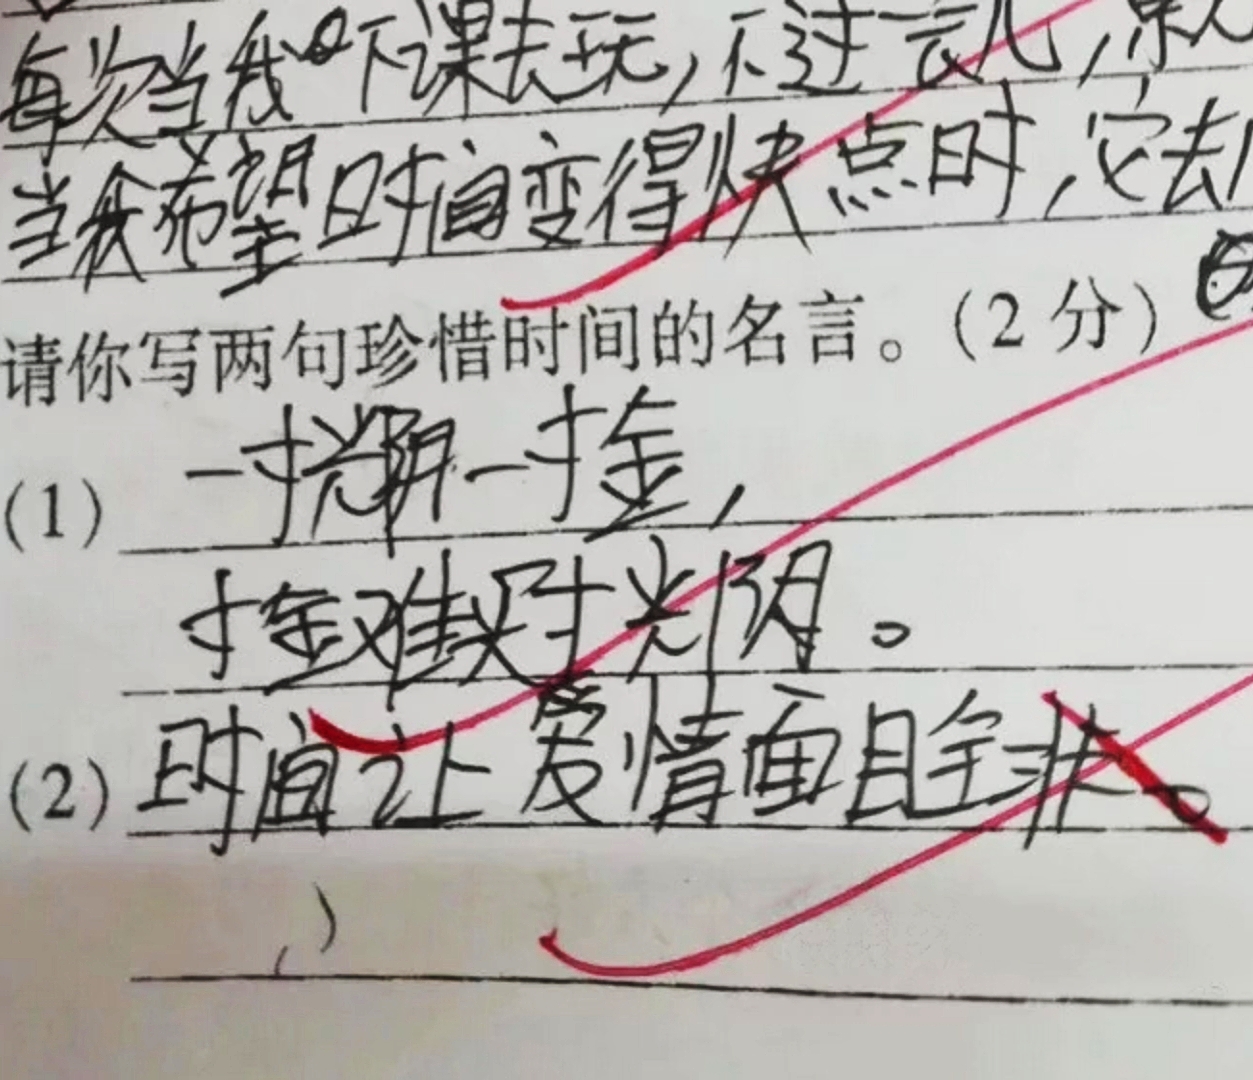 每次当我下课去玩，不过一会儿，就
当我希望时间变得快点时，它却
请你写两句珍惜时间的名言。（2分）
(1) 一寸光阴一寸金，
寸金难买寸光阴。
(2) 时间让爱情面目全非。